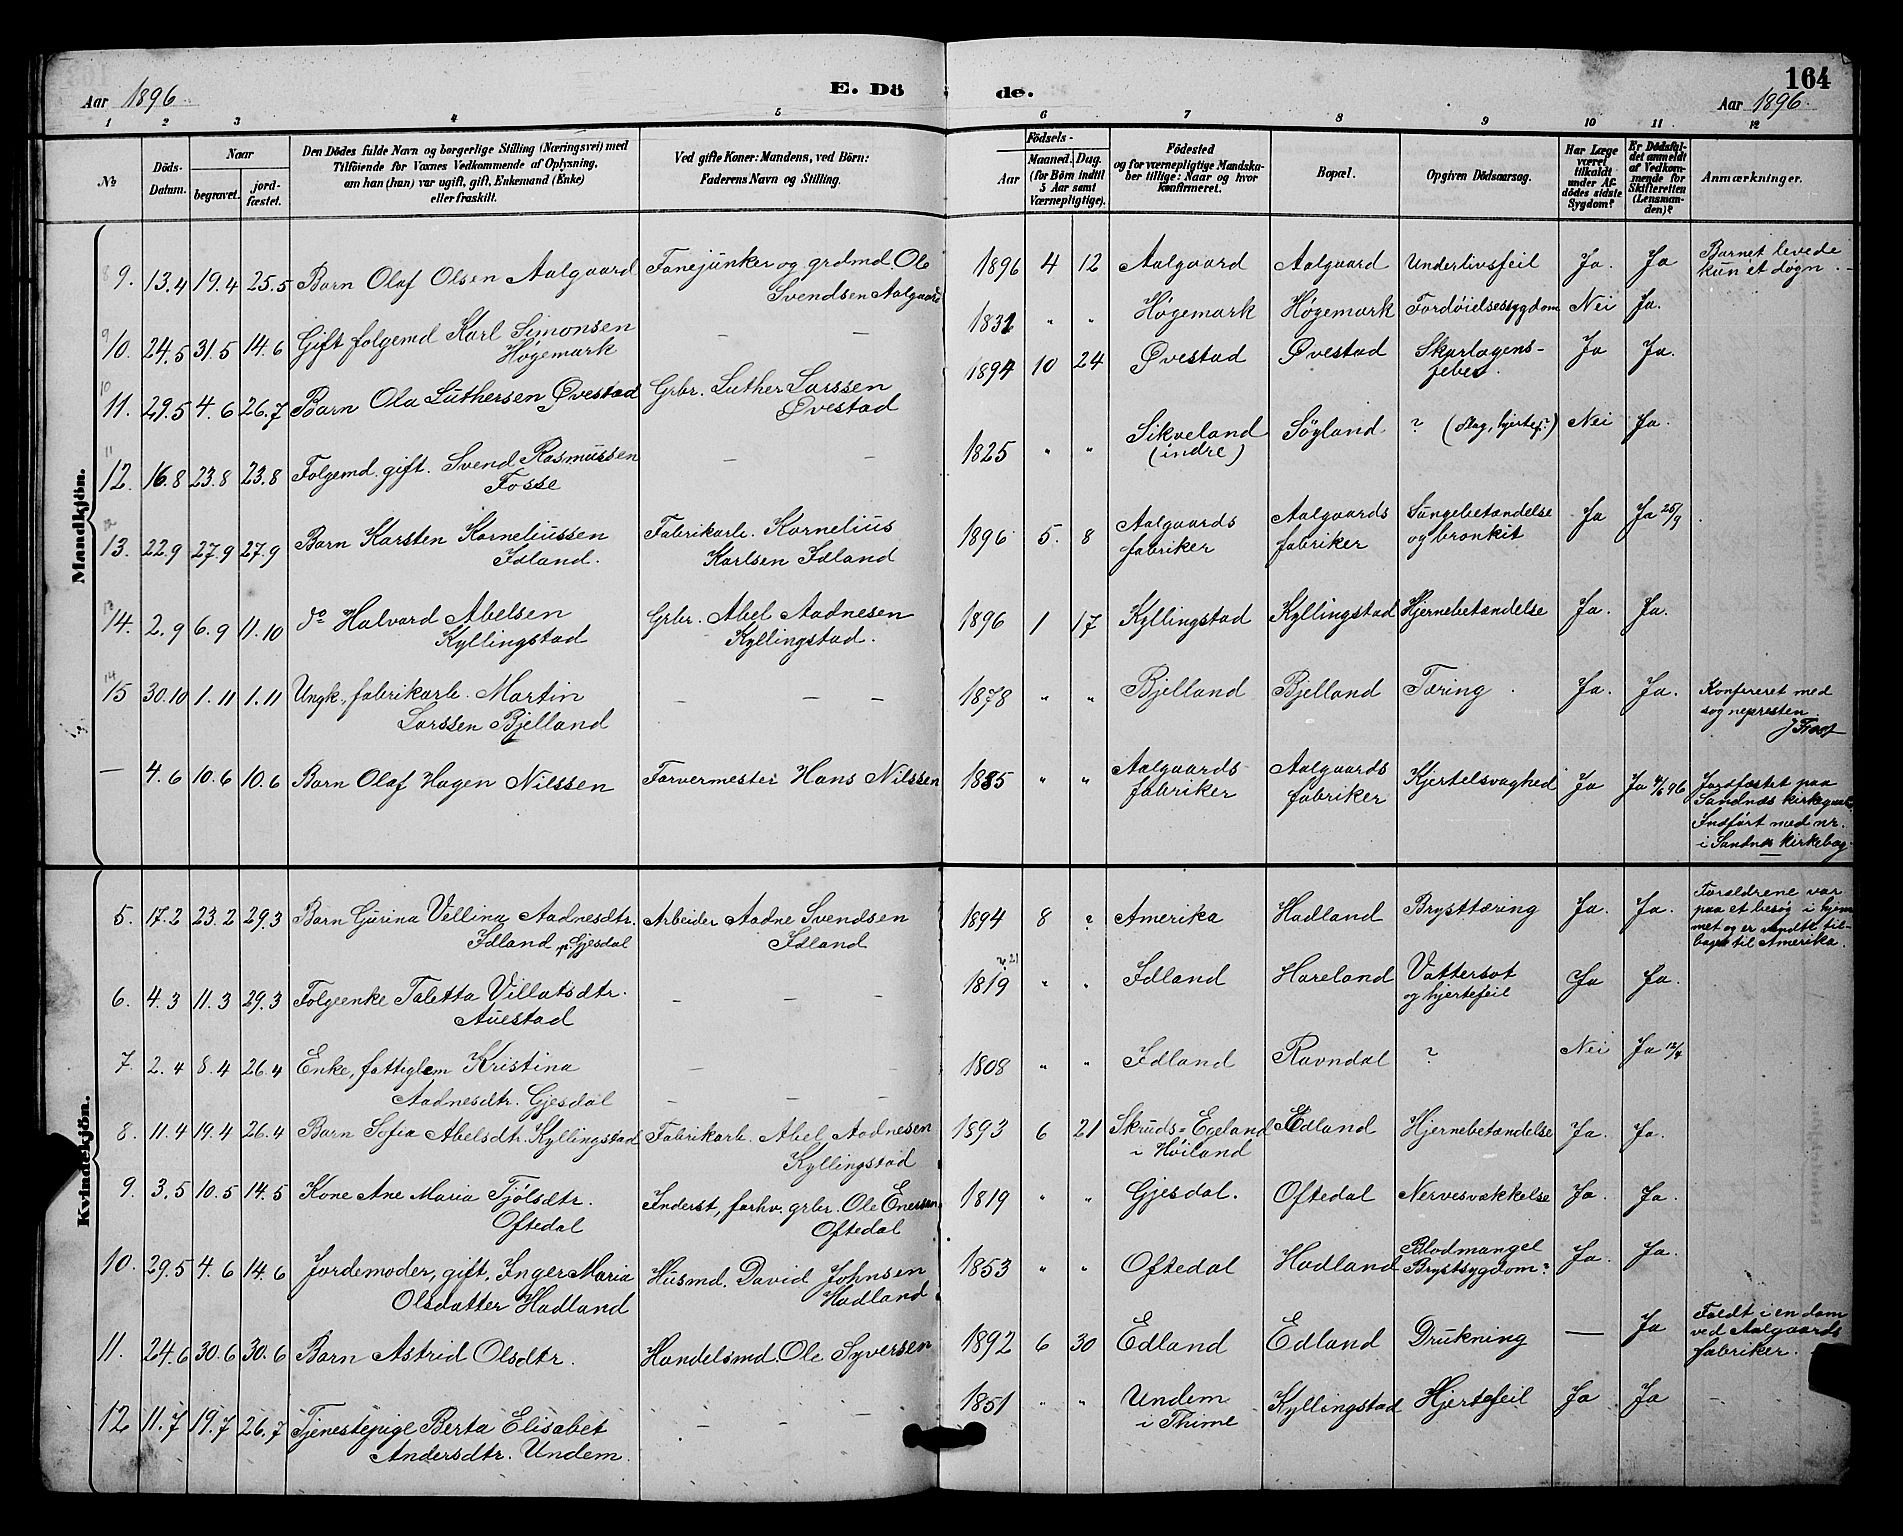 Aar 1896.
E. Dö
de.
164
Aar 1896.
1 2 3 4 5 6 7 8 9 10 11 12
№
Döds-Datum.
Naar
begravet.
jord-fæstet.
Den Dödes fulde Navn og borgerlige Stilling (Næringsvei) med
Tilföiende for Voxnes Vedkommende af Oplysning,
om han (hun) var ugift, gift, Enkemand (Enke)
eller fraskilt.
Ved gifte Koner: Mandens, ved Börn:
Faderens Navn og Stilling.
Födsels-
Aar
Maaned. Dag.
(for Börn indtil
5 Aar samt
Værnepligtige).
Födested
og for værnepligtige Mandska-
ber tillige: Naar og hvor
konfirmeret.
Bopæl.
Opgiven Dödsaarsag.
Har Læge
været
tilkaldt
under Af-
dödes sidste
Sygdom?
Er Dödsfal-
det anmeldt
af Vedkom-
mende for
Skifteretten
(Lensman-
den)?
Anmærkninger.
Mandkjön.
8 9. 13.4 19.4 25.5 Barn Olaf Olsen Aalgaard Fanejunker og grdmd. Ole
Svendsen Aalgaard
1896 4 12 Aalgaard Aalgaard Underlivsfeil Ja. Ja Barnet levede
kun et døgn.
9 10. 24.5 31.5 14.6 Gift folgemd Karl Simonsen — —
Høgemark
1831 " " Høgemark Høgemark Fordøielsessygdom Nei Ja.
10 11. 29.5 4.6 26.7 Barn Ola Luthersen Øvestad Grbr. Luther Larssen
Øvestad
1894 10 24 Øvestad Øvestad Skarlagens-
feber. Ja Ja.
11 12. 16.8 23.8 23.8 Folgemd. gift. Svend Rasmussen — —
Fosse
1825 " " Sikveland
(indre) Søyland ? (slag, hjertef.?) Nei Ja.
12 13. 22.9 27.9 27.9 Barn Karsten Korneliussen Fabrikarb. Kornelius
Idland. Karlsen Idland
1896 5. 8 Aalgaards
fabriker Aalgaards
fabriker Lungebetændelse
og bronkit Ja Ja 25/9
13 14. 2.9 6.9 11.10 do Halvard Abelsen Grbr. Abel Aadnesen
Kyllingstad Kyllingstad.
1896 1 17 Kyllingstad Kyllingstad Hjernebetændelse Ja. Ja.
14 15 30.10 1.11 1.11 Ungk., fabrikarb. Martin — — —
Larssen Bjelland
1878 " " Bjelland Bjelland Tæring. Ja. Ja. Konfereret med
sognepresten
— 4.6 10.6 10.6 Barn Olaf Hagen Nilssen Farvermester Hans Nilssen
1885 " " Aalgaards
fabriker Aalgaards
fabriker Kjertelsvaghed Ja Ja 4/6 96 Jordfæstet paa
Sandnes kirkegaard.
Indført med nr.
i Sandnes kirkebog.
Kvindekjön.
5. 17.2 23.2 29.3 Barn Gurina Vellina Aadnesdtr. Arbeider Aadne Svendsen
Idland p. Gjesdal Idland
1894 8 ? Amerika Hadland Brysttæring Ja. Ja. Forældrene var
paa et besøg i hjem
met og er vendte til-
bage til Amerika.
6. 4.3 11.3 29.3 Folgeenke Taletta Villatsdtr. — — —
Auestad
1819 21 " " Idland Hareland Vattersot
og hjertefeil Ja Ja.
7. 2.4 8.4 26.4 Enke, fattiglem Kristina — —
Aadnesdtr. Gjesdal — — —
1808 " " Idland Ravndal ? Nei Ja 12/4
8. 11.4 19.4 26.4 Barn Sofia Abelsdtr. Kyllingstad Fabrikarb. Abel Aadnesen
Kyllingstad
1893 6 21 Skuds-Egeland
i Høiland Edland Hjernebetændelse Ja. Ja.
9. 3.5 10.5 14.5 Kone Ane Maria Tjølsdtr. Inderst, forhv. grbr. Ole Enersen
Oftedal Oftedal
1819 " " Gjesdal. Oftedal Nervesvækkelse Ja. Ja.
10. 29.5 4.6 14.6 Jordemoder, gift, Inger Maria Husmd. David Johnsen
Olsdatter Hadland Hadland
1853 " " Oftedal Hadland Blodmangel
Brystsygdom? Ja. Ja.
11. 24.6 30.6 30.6 Barn Astrid Olsdtr. Handelsmd. Ole Syversen
1892 6 30 Edland Edland Drukning — Ja Faldt i en dam
ved Aalgaards
fabriker.
12 11.7 19.7 26.7 Tjenestepige Berta Elisabet — — —
Andersdtr. Undem.
1851 " " Undem
i Thime Kyllingstad Hjertefeil Ja Ja —